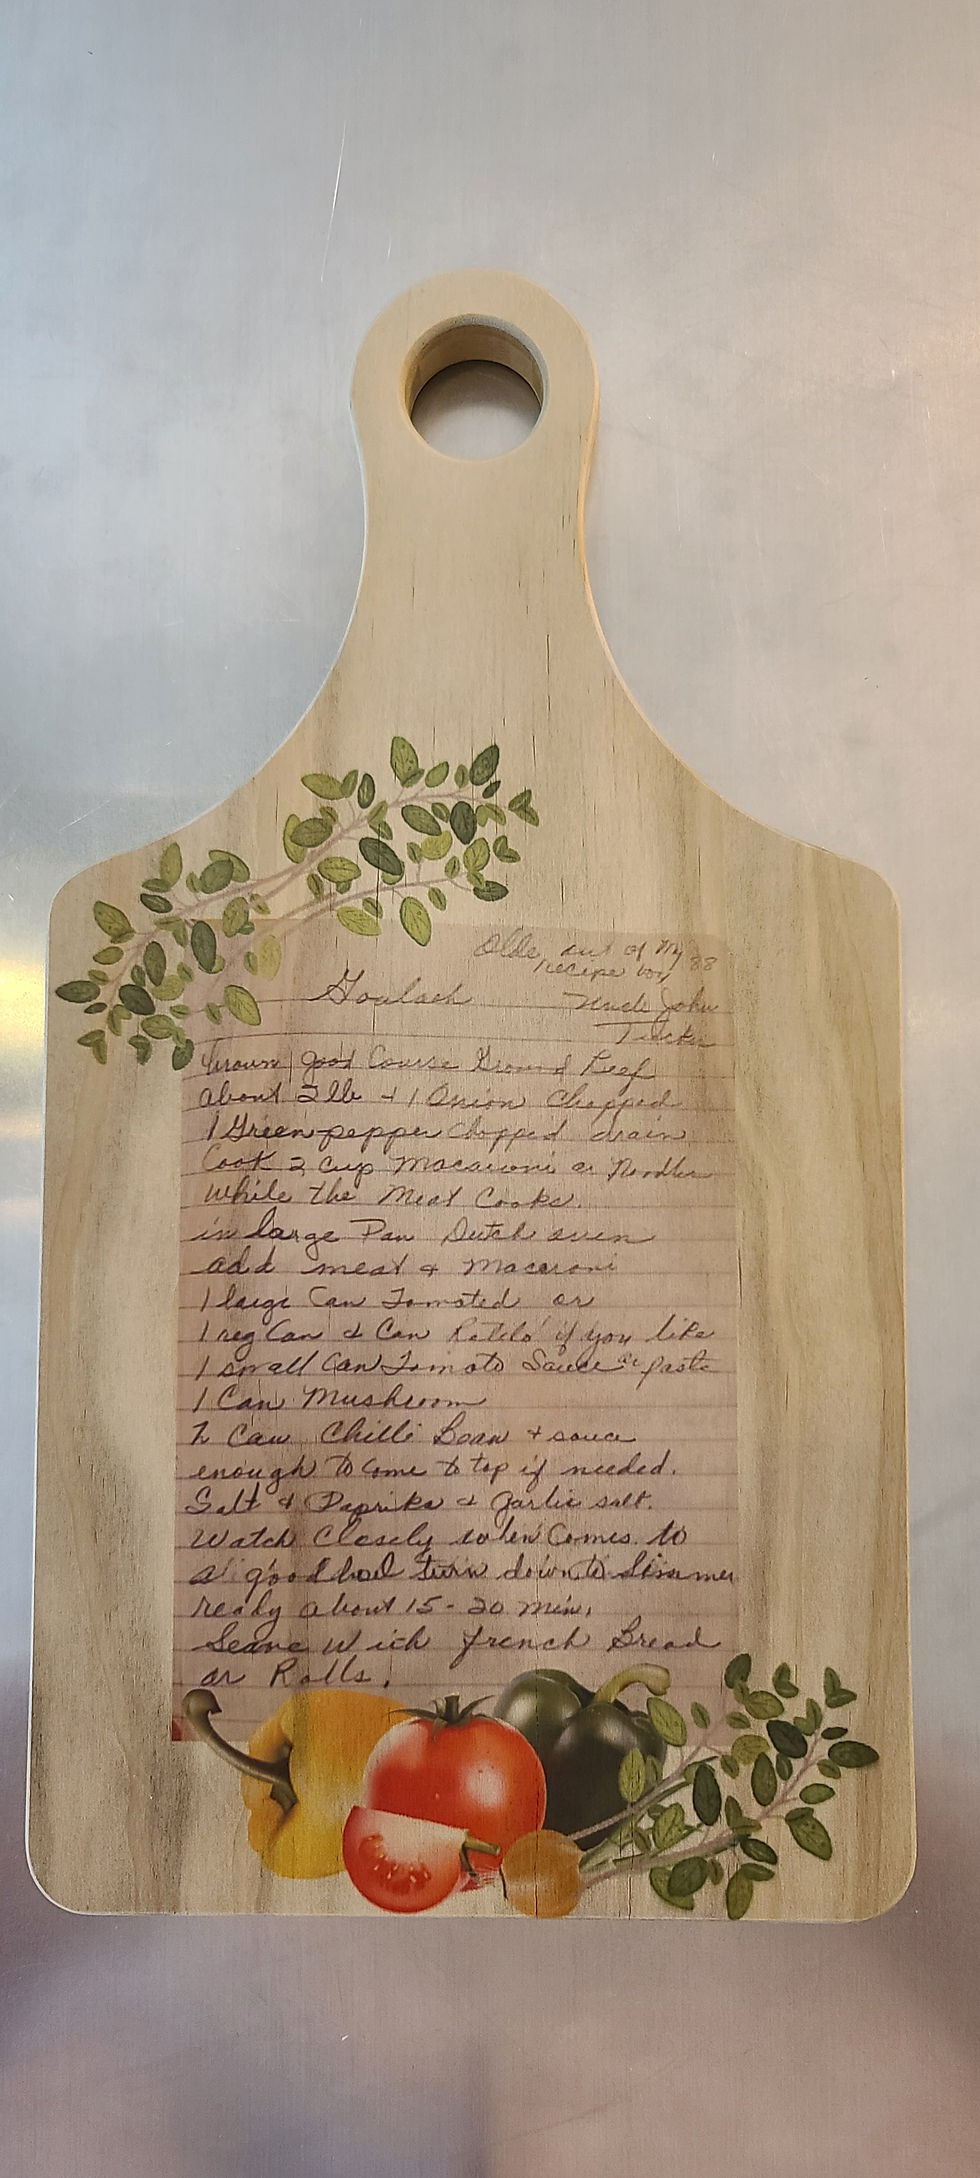 Olde out of My
recipe box 88
Goulash Uncle John
Tucker
brown good Course Ground Beef
about 2 lb + 1 Onion Chopped
1 Green pepper Chopped drain
Cook 2 cup Macaroni or Noodles
While the Meat Cooks.
in large Pan Dutch oven
add meat & Macaroni
1 large Can Tomated or
1 reg Can & Can Rotelo if you like
1 small Can Tomato Sauce or paste
1 Can Mushroom
2 Can Chilli Bean + sauce
enough to come to top if needed.
Salt & Paprika & Garlic salt.
Watch Closely when Comes to
a good boil turn down to Simmer
ready about 15-20 min.
Serve Wich french Bread
or Rolls.